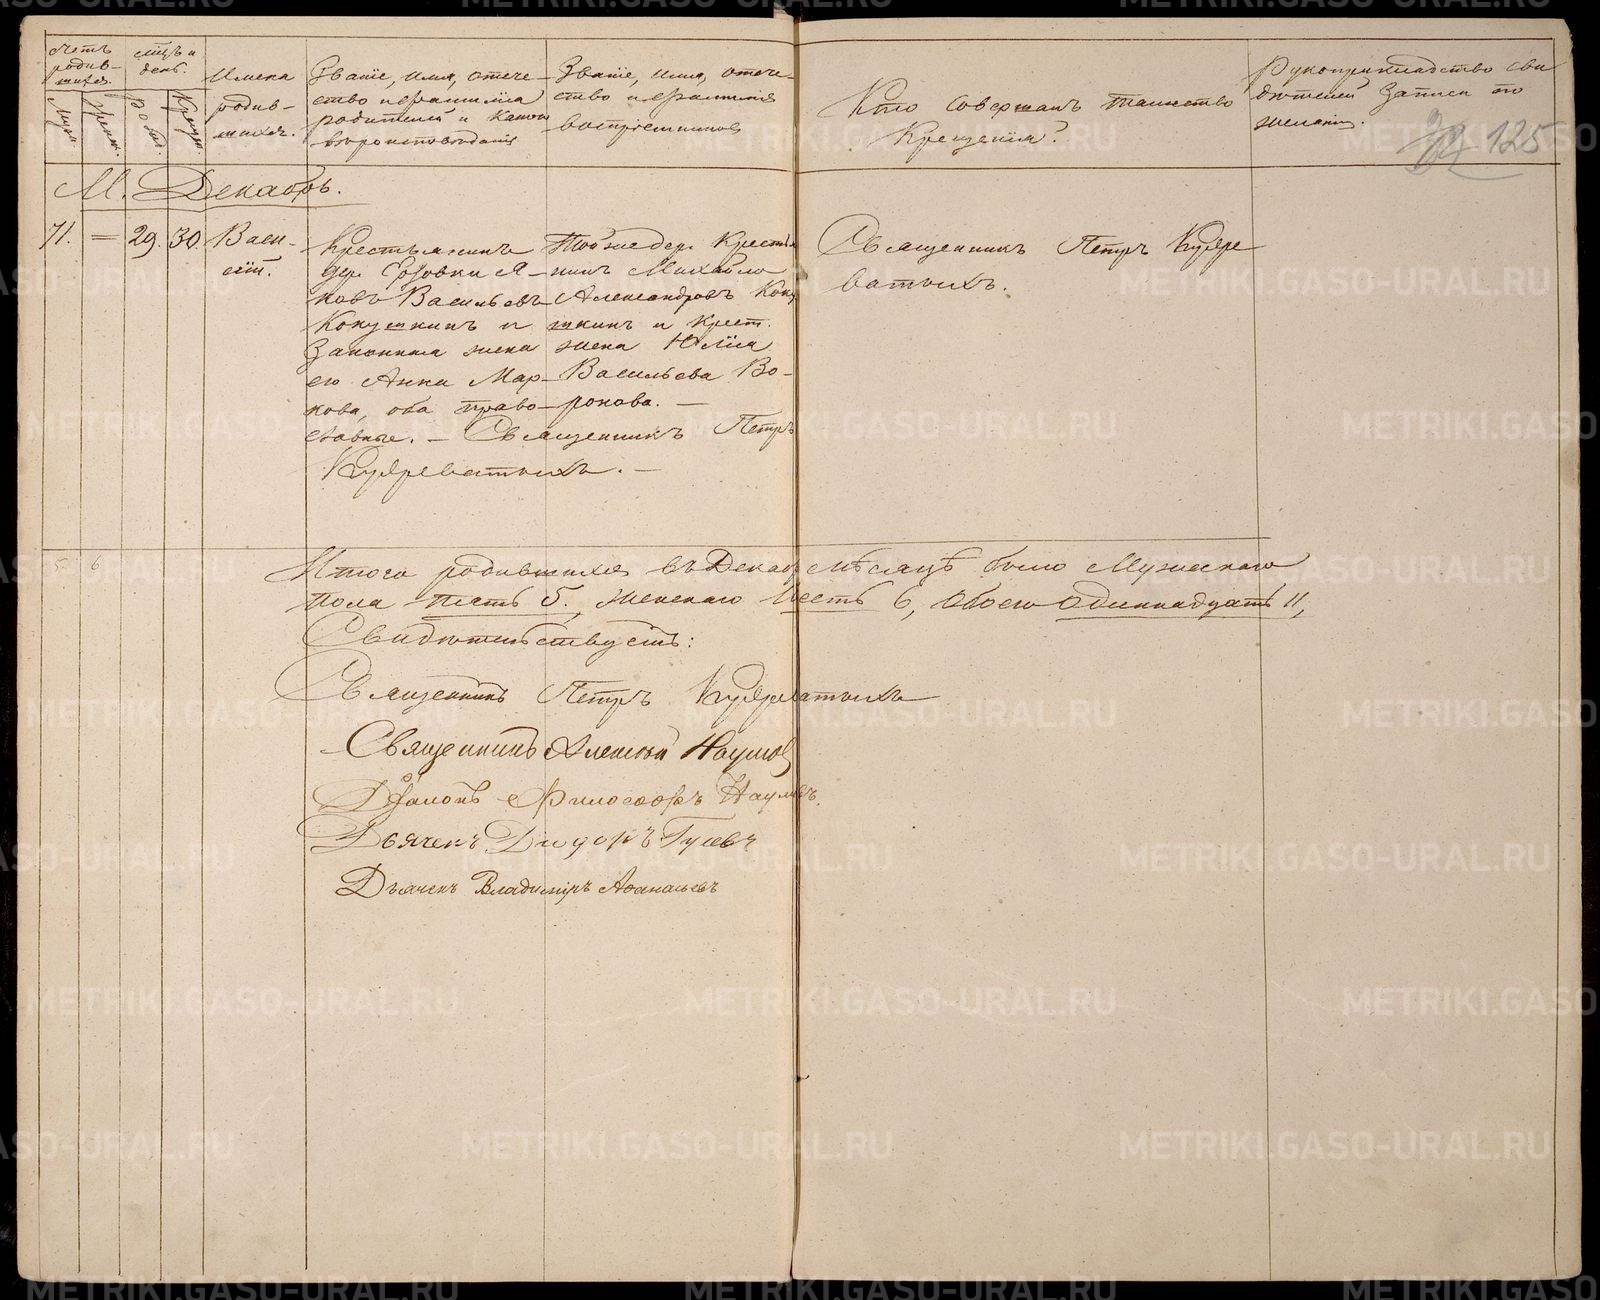 Счетъ родив-шихся.
Муж.
Женск.
Мѣсяцъ и день.
Рожд.
Крещ.
Имена
родив-
шихся.
Званіе, имя, отече-
ство и фамилія
родителей и какого
вѣроисповѣданія
Званіе, имя, отече-
ство и фамилія
воспріемниковъ
Кто совершалъ таинство
Крещенія?
Рукоприкладство сви
дѣтелей записи по
желанію.
125
М. Декабрь.
71. = 29. 30. Васи-
лій.
Крестьянинъ
дер. Я-
ковъ Васильевъ
Кокушкинъ и
Законная жена
его Анна Мар-
кова, оба право-
славные. – Священникъ Петръ
Кудреватыхъ. –
Тойже дер. Крестья
нинъ Михайло
Александровъ Коку
шкинъ и крест.
жена Юлія
Васильева Во-
ронова. –
Священникъ Петръ Кудре
ватыхъ.
5 6
Итого родившихся въ Декабрѣ мѣсяцѣ было Мужескаго
пола пять 5, женскаго шесть 6, обоего одиннадцать 11,
Свидѣтельствуетъ:
Священникъ Петръ Кудреватыхъ
Священникъ Алексѣй Наумовъ
Діаконъ Философъ Наумовъ.
Дьячекъ Діодоръ Гусевъ
Дьячекъ Владиміръ Афанасьевъ
METRIKI.GASO-URAL.RU